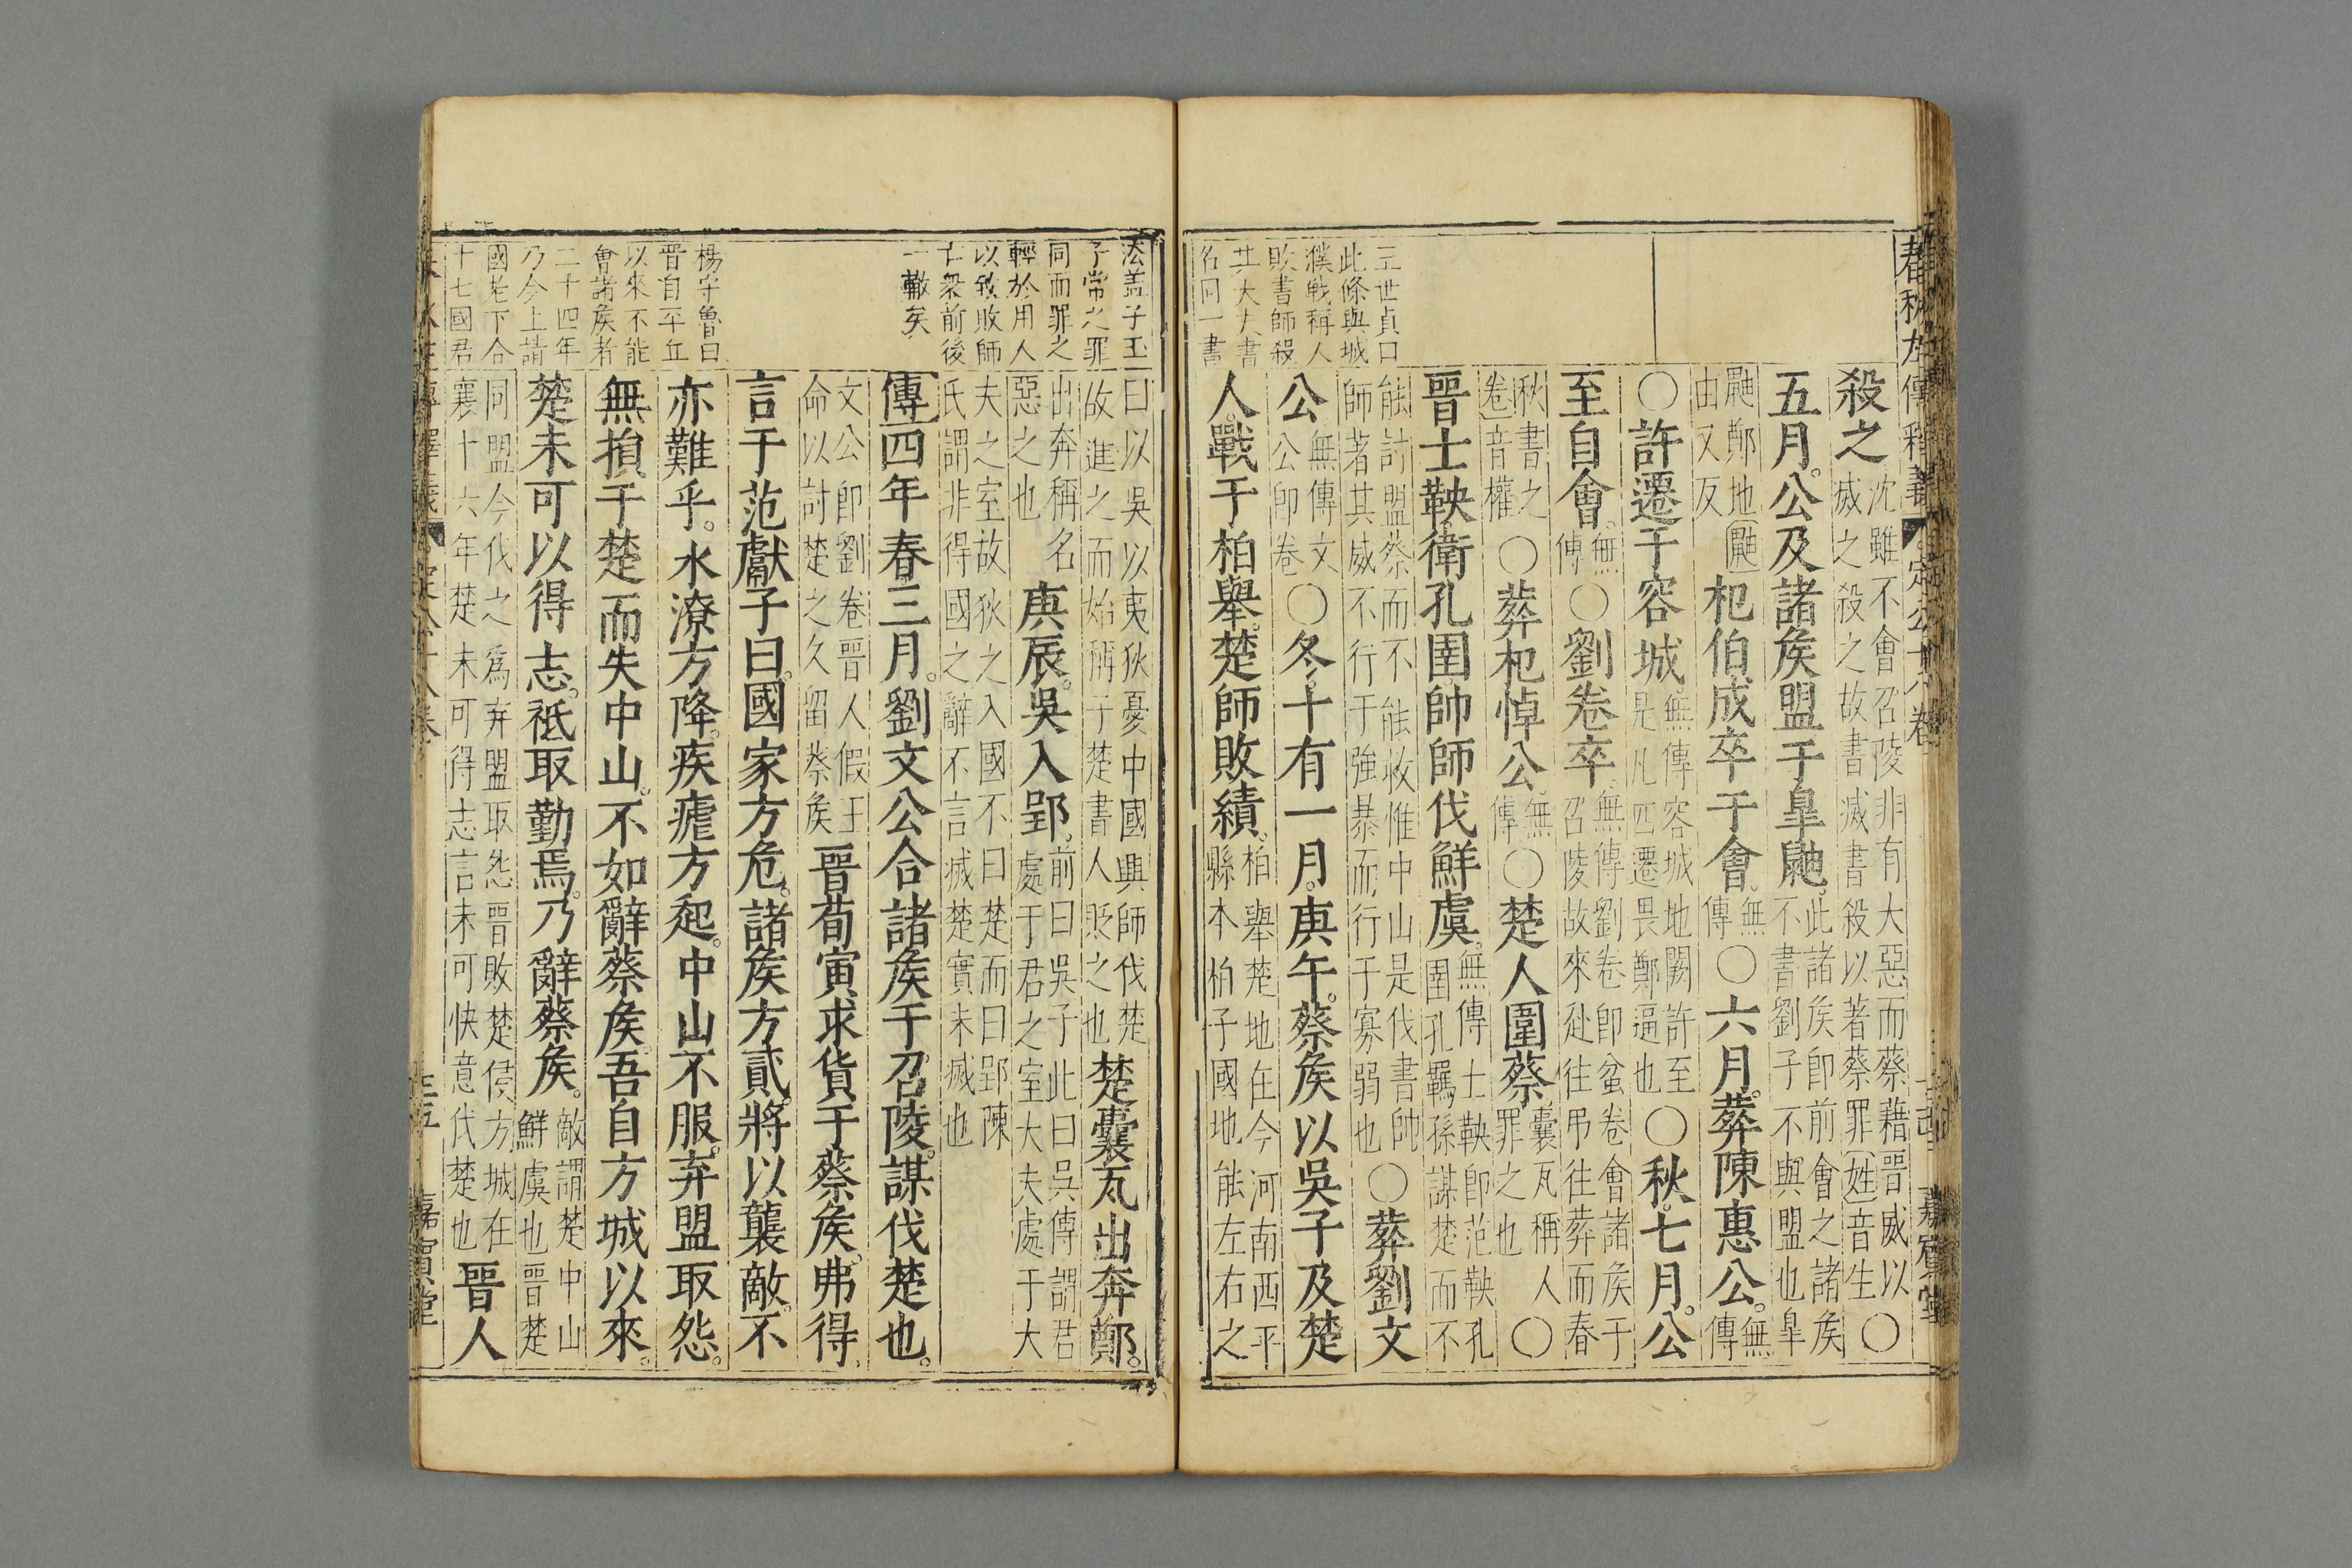 春秋左傳釋義 定公十八卷 嘉賓堂
殺之沈雖不會召陵非有大惡而蔡藉晋威以
滅之殺之故書滅書殺以著蔡罪姓音生○
五月。公及諸矦盟于皐鼬。此諸矦即前會之諸矦
不書劉子不與盟也皐
鼬鄭地鼬
由又反杞伯成卒于會。無傳○六月。葬陳惠公。無傳
○許遷于容城。無傳容城地闕許至
是凡四遷畏鄭逼也○秋。七月。公
至自會。無傳○劉卷卒。無傳劉卷即蚠卷會諸矦于
召陵故來赴往弔往葬而春
秋書之
卷音權○葬杞悼公。無傳○楚人圍蔡。囊瓦稱人
罪之也○
晉士鞅衛孔圉帥師伐鮮虞。無傳士鞅即范鞅孔
圉孔羈孫謀楚而不
能討盟蔡而不能救惟中山是伐書帥
師著其威不行于強暴而行于寡弱也○葬劉文
公無傳文
公即卷○冬。十有一月。庚午。蔡矦以吳子及楚
人。戰于柏舉。楚師敗績。柏舉楚地在今河南西平
縣本柏子國地能左右之
王世貞曰
此條與城
濮戰稱人
敗書師殺
其大夫書
名同一書
法盖子玉
子常之罪
同而罪之
輕於用人
以致敗師
亡衆前後
一轍矣
曰以吳以夷狄憂中國興師伐楚
故進之而始稱子楚書人貶之也楚囊瓦出奔鄭。
出奔稱名
惡之也庚辰。吳入郢。前曰吳子此曰吳傳謂君
處于君之室大夫處于大
夫之室故狄之入國不曰楚而曰郢陳
氏謂非得國之辭不言滅楚實未滅也
傳四年春三月。劉文公合諸矦于召陵。謀伐楚也。
文公即劉卷晋人假王
命以討楚之久留蔡矦晉荀寅求貨于蔡矦。弗得。
言于范獻子曰。國家方危。諸矦方貳。將以襲敵。不
亦難乎。水潦方降。疾瘧方起。中山不服。弃盟取怨。
無損于楚而失中山。不如辭蔡矦。吾自方城以來。
楚未可以得志。祗取勤焉。乃辭蔡矦。敵謂楚中山
鮮虞也晋楚
同盟今伐之爲弃盟取怨晋敗楚侵方城在
襄十六年楚未可得志言未可快意伐楚也晉人
楊守魯曰
晋自平丘
以來不能
會諸矦者
二十四年
乃今上請
國老下合
十七國君
嘉賓堂